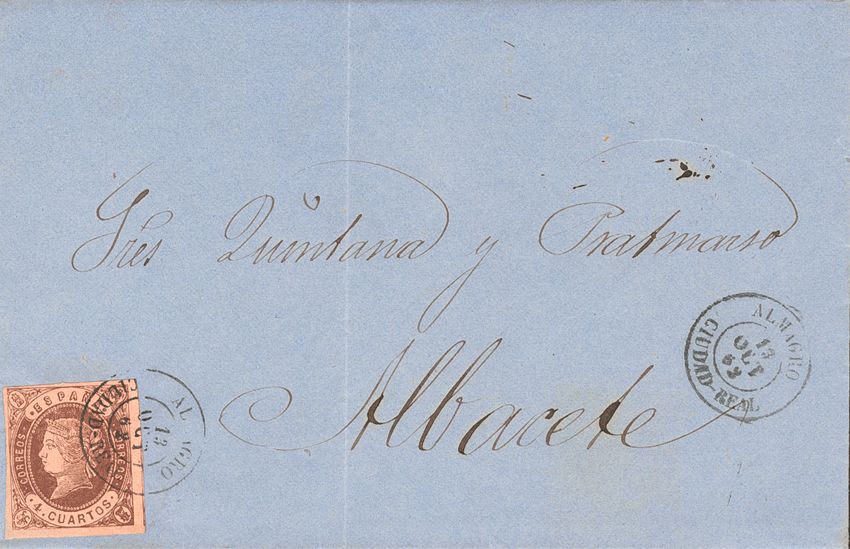 Sres Quintana y Pratmarso
Albacete
ALMAGRO
13
OCT
62
CIUDAD-REAL
ALMAGRO
13
OCT
CIUDAD-R
CORREOS
ESPAÑA
CORREOS
4 CUARTOS